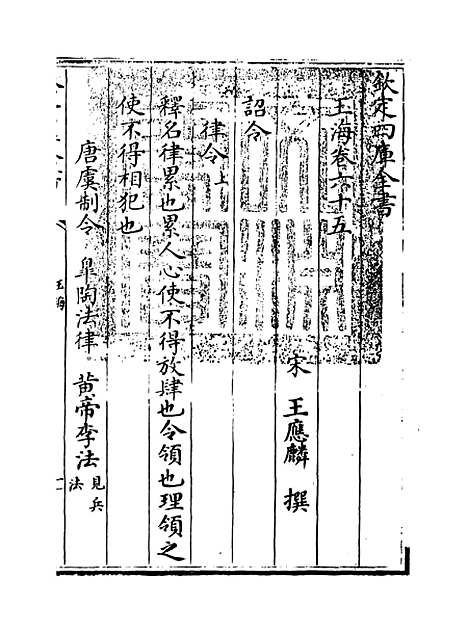 欽定四庫全書
玉海卷六十五
宋 王應麟 撰
詔令
律令上
釋名律累也累人心使不得放肆也令領也理領之
使不得相犯也
唐虞制令 臯陶法律 黃帝李法見兵法
玉海